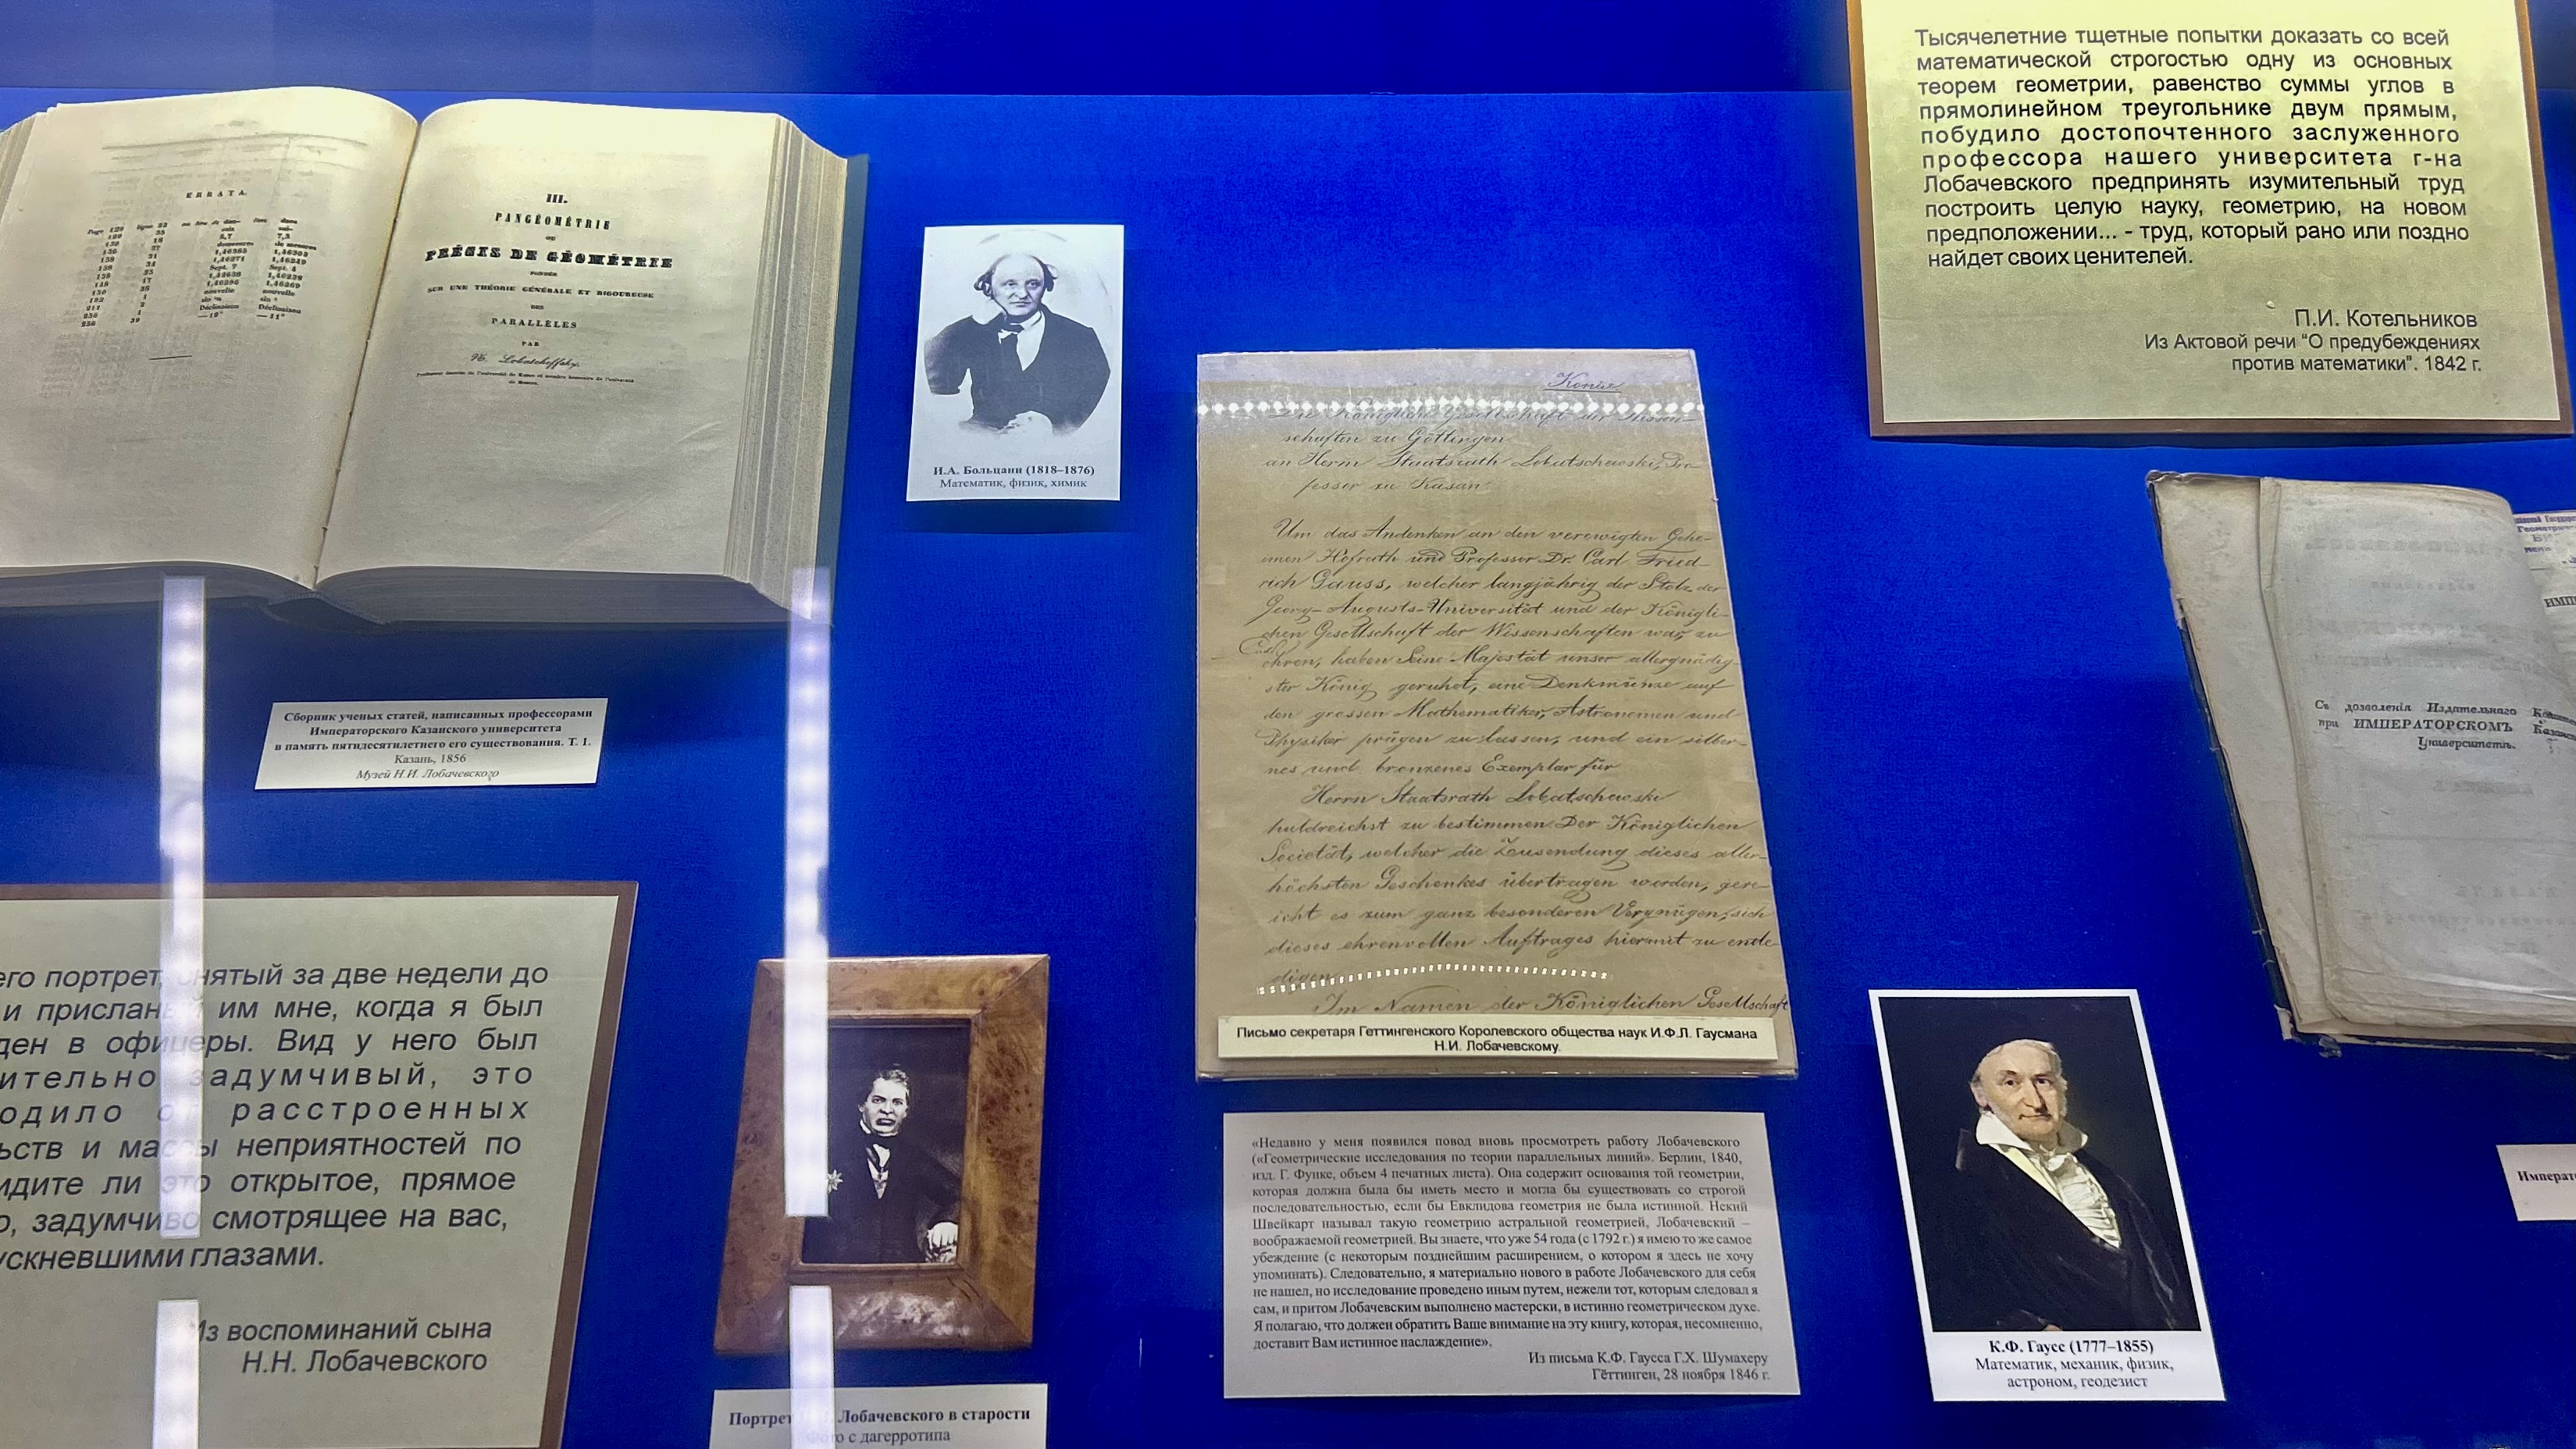 ERRATA.
III.
PANGÉOMÉTRIE
OU
PRÉCIS DE GÉOMÉTRIE
FONDÉE
SUR UNE THÉORIE GÉNÉRALE ET RIGOUREUSE
DES
PARALLÈLES
PAR
Lobatcheffsky,
И.А. Больцани (1818–1876)
Математик, физик, химик
Сборник ученых статей, написанных профессорами
Императорского Казанского университета
в память пятидесятилетнего его существования. Т. 1.
Казань, 1856
Музей Н.И. Лобачевского
его портрет, снятый за две недели до
и присланный им мне, когда я был
ден в офицеры. Вид у него был
ительно задумчивый, это
одило от расстроенных
ьств и массы неприятностей по
идите ли это открытое, прямое
о, задумчиво смотрящее на вас,
ускневшими глазами.
Из воспоминаний сына
Н.Н. Лобачевского
Портрет Лобачевского в старости
Фото с дагерротипа
Копия
Die Königliche Gesellschaft der Wissen-
schaften zu Göttingen
an Herrn Staatsrath Lobatschewski, Pro-
fessor zu Kasan
Um das Andenken an den verewigten Gehei-
men Hofrath und Professor Dr. Carl Fried-
rich Gauss, welcher langjährig der Stolz der
Georg-Augusts-Universität und der Königli-
chen Gesellschaft der Wissenschaften war, zu
ehren, haben Seine Majestät unser allergnädig-
ster König geruhet, eine Denkmünze auf
den grossen Mathematiker, Astronomen und
Physiker prägen zu lassen, und ein silber-
nes und bronzenes Exemplar für
Herrn Staatsrath Lobatschewski
huldreichst zu bestimmen. Der Königlichen
Societät, welcher die Zusendung dieses aller-
höchsten Geschenkes übertragen worden, gere-
icht es zum ganz besonderen Vergnügen, sich
dieses ehrenvollen Auftrages hiermit zu entle-
digen
Im Namen der Königlichen Gesellschaft
Письмо секретаря Геттингенского Королевского общества наук И.Ф.Л. Гаусмана
Н.И. Лобачевскому.
«Недавно у меня появился повод вновь просмотреть работу Лобачевского
(«Геометрические исследования по теории параллельных линий». Берлин, 1840,
изд. Г. Функе, объем 4 печатных листа). Она содержит основания той геометрии,
которая должна была бы иметь место и могла бы существовать со строгой
последовательностью, если бы Евклидова геометрия не была истинной. Некий
Швейкарт называл такую геометрию астральной геометрией, Лобачевский –
воображаемой геометрией. Вы знаете, что уже 54 года (с 1792 г.) я имею то же самое
убеждение (с некоторым позднейшим расширением, о котором я здесь не хочу
упоминать). Следовательно, я материально нового в работе Лобачевского для себя
не нашел, но исследование проведено иным путем, нежели тот, которым следовал я
сам, и притом Лобачевским выполнено мастерски, в истинно геометрическом духе.
Я полагаю, что должен обратить Ваше внимание на эту книгу, которая, несомненно,
доставит Вам истинное наслаждение».
Из письма К.Ф. Гаусса Г.Х. Шумахеру
Гёттинген, 28 ноября 1846 г.
Тысячелетние тщетные попытки доказать со всей
математической строгостью одну из основных
теорем геометрии, равенство суммы углов в
прямолинейном треугольнике двум прямым,
побудило достопочтенного заслуженного
профессора нашего университета г-на
Лобачевского предпринять изумительный труд
построить целую науку, геометрию, на новом
предположении... - труд, который рано или поздно
найдет своих ценителей.
П.И. Котельников
Из Актовой речи "О предубеждениях
против математики". 1842 г.
Съ дозволенія Издательнаго
при ИМПЕРАТОРСКОМЪ
Университетѣ.
К.Ф. Гаусс (1777–1855)
Математик, механик, физик,
астроном, геодезист